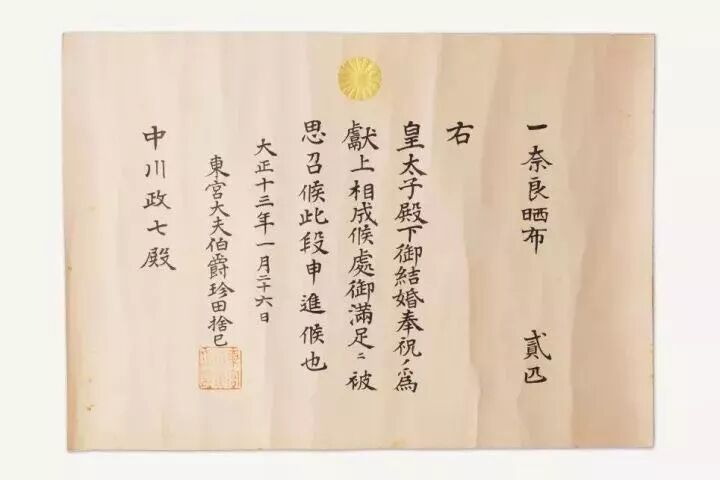 一奈良晒布 貳匹
右
皇太子殿下御結婚奉祝ノ為
獻上相成候處御滿足ニ被
思召候此段申進候也
大正十三年一月二十六日
東宮大夫伯爵珍田捨巳
中川政七殿